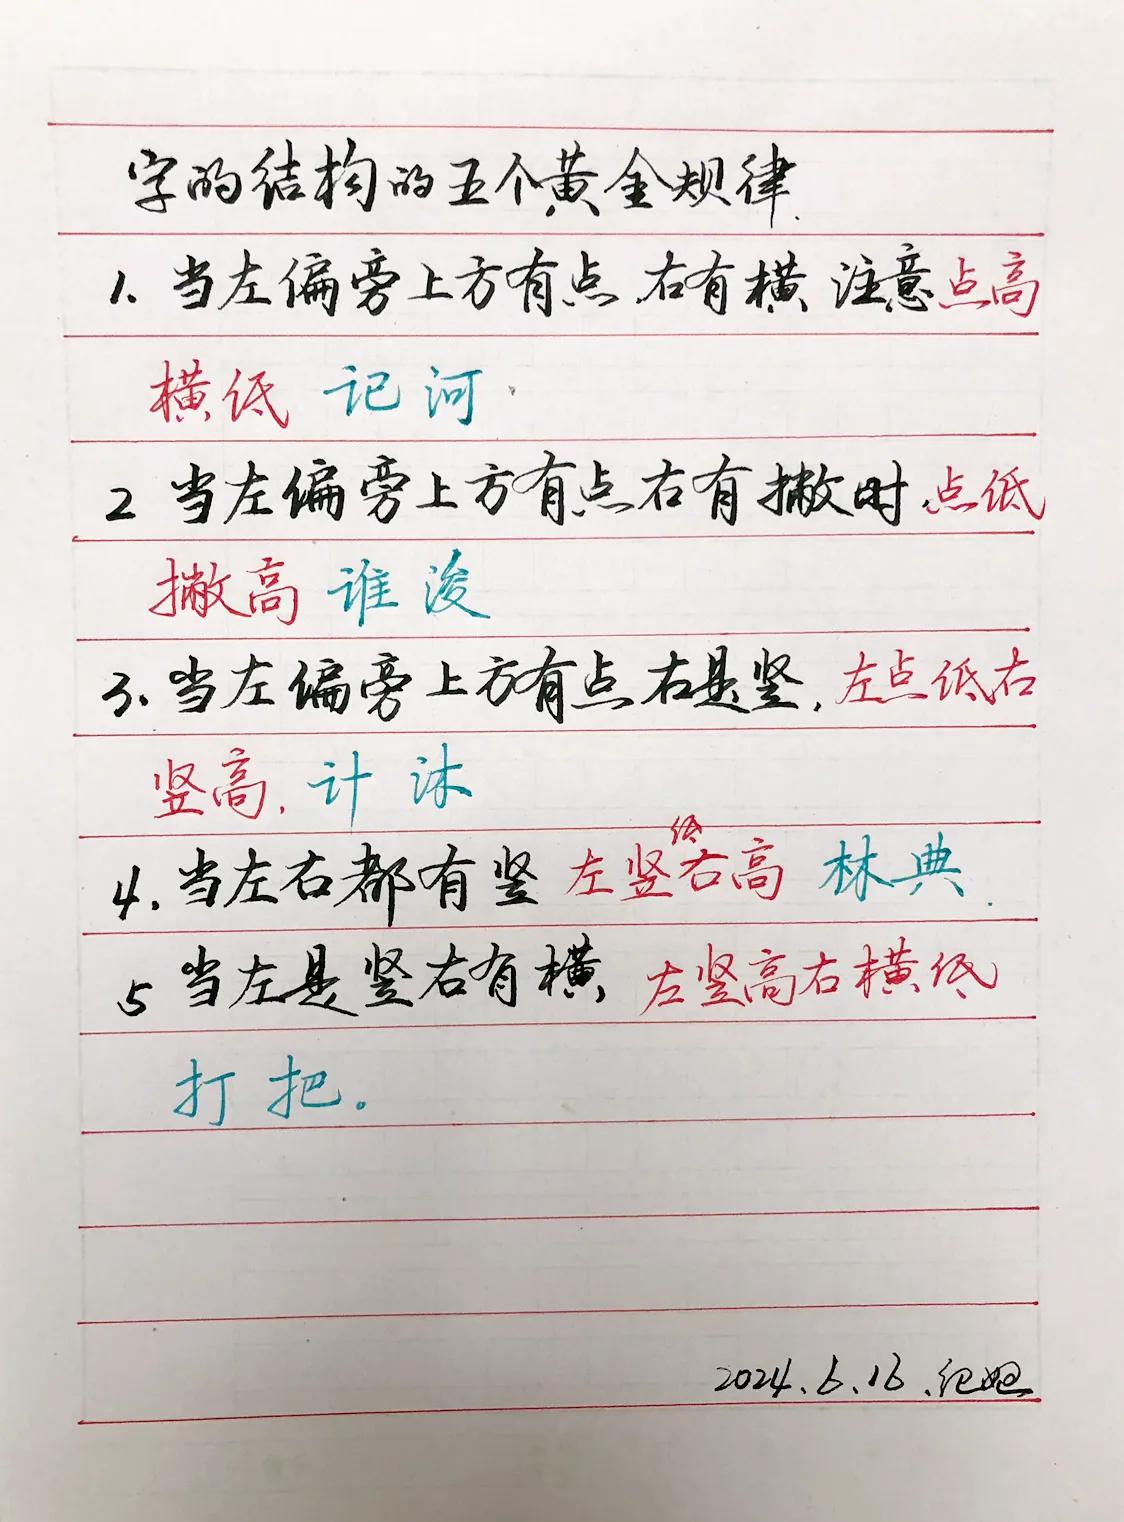 字的结构的五个黄金规律.
1. 当左偏旁上方有点.右有横 注意点高
横低 记 河.
2 当左偏旁上方有点右有撇时.点低
撇高 谁 浚
3. 当左偏旁上方有点右是竖,左点低右
竖高. 计 沐
4. 当左右都有竖 左竖低右高 林 典.
5 当左是竖右有横 左竖高右横低
打 把。
2024.6.16.